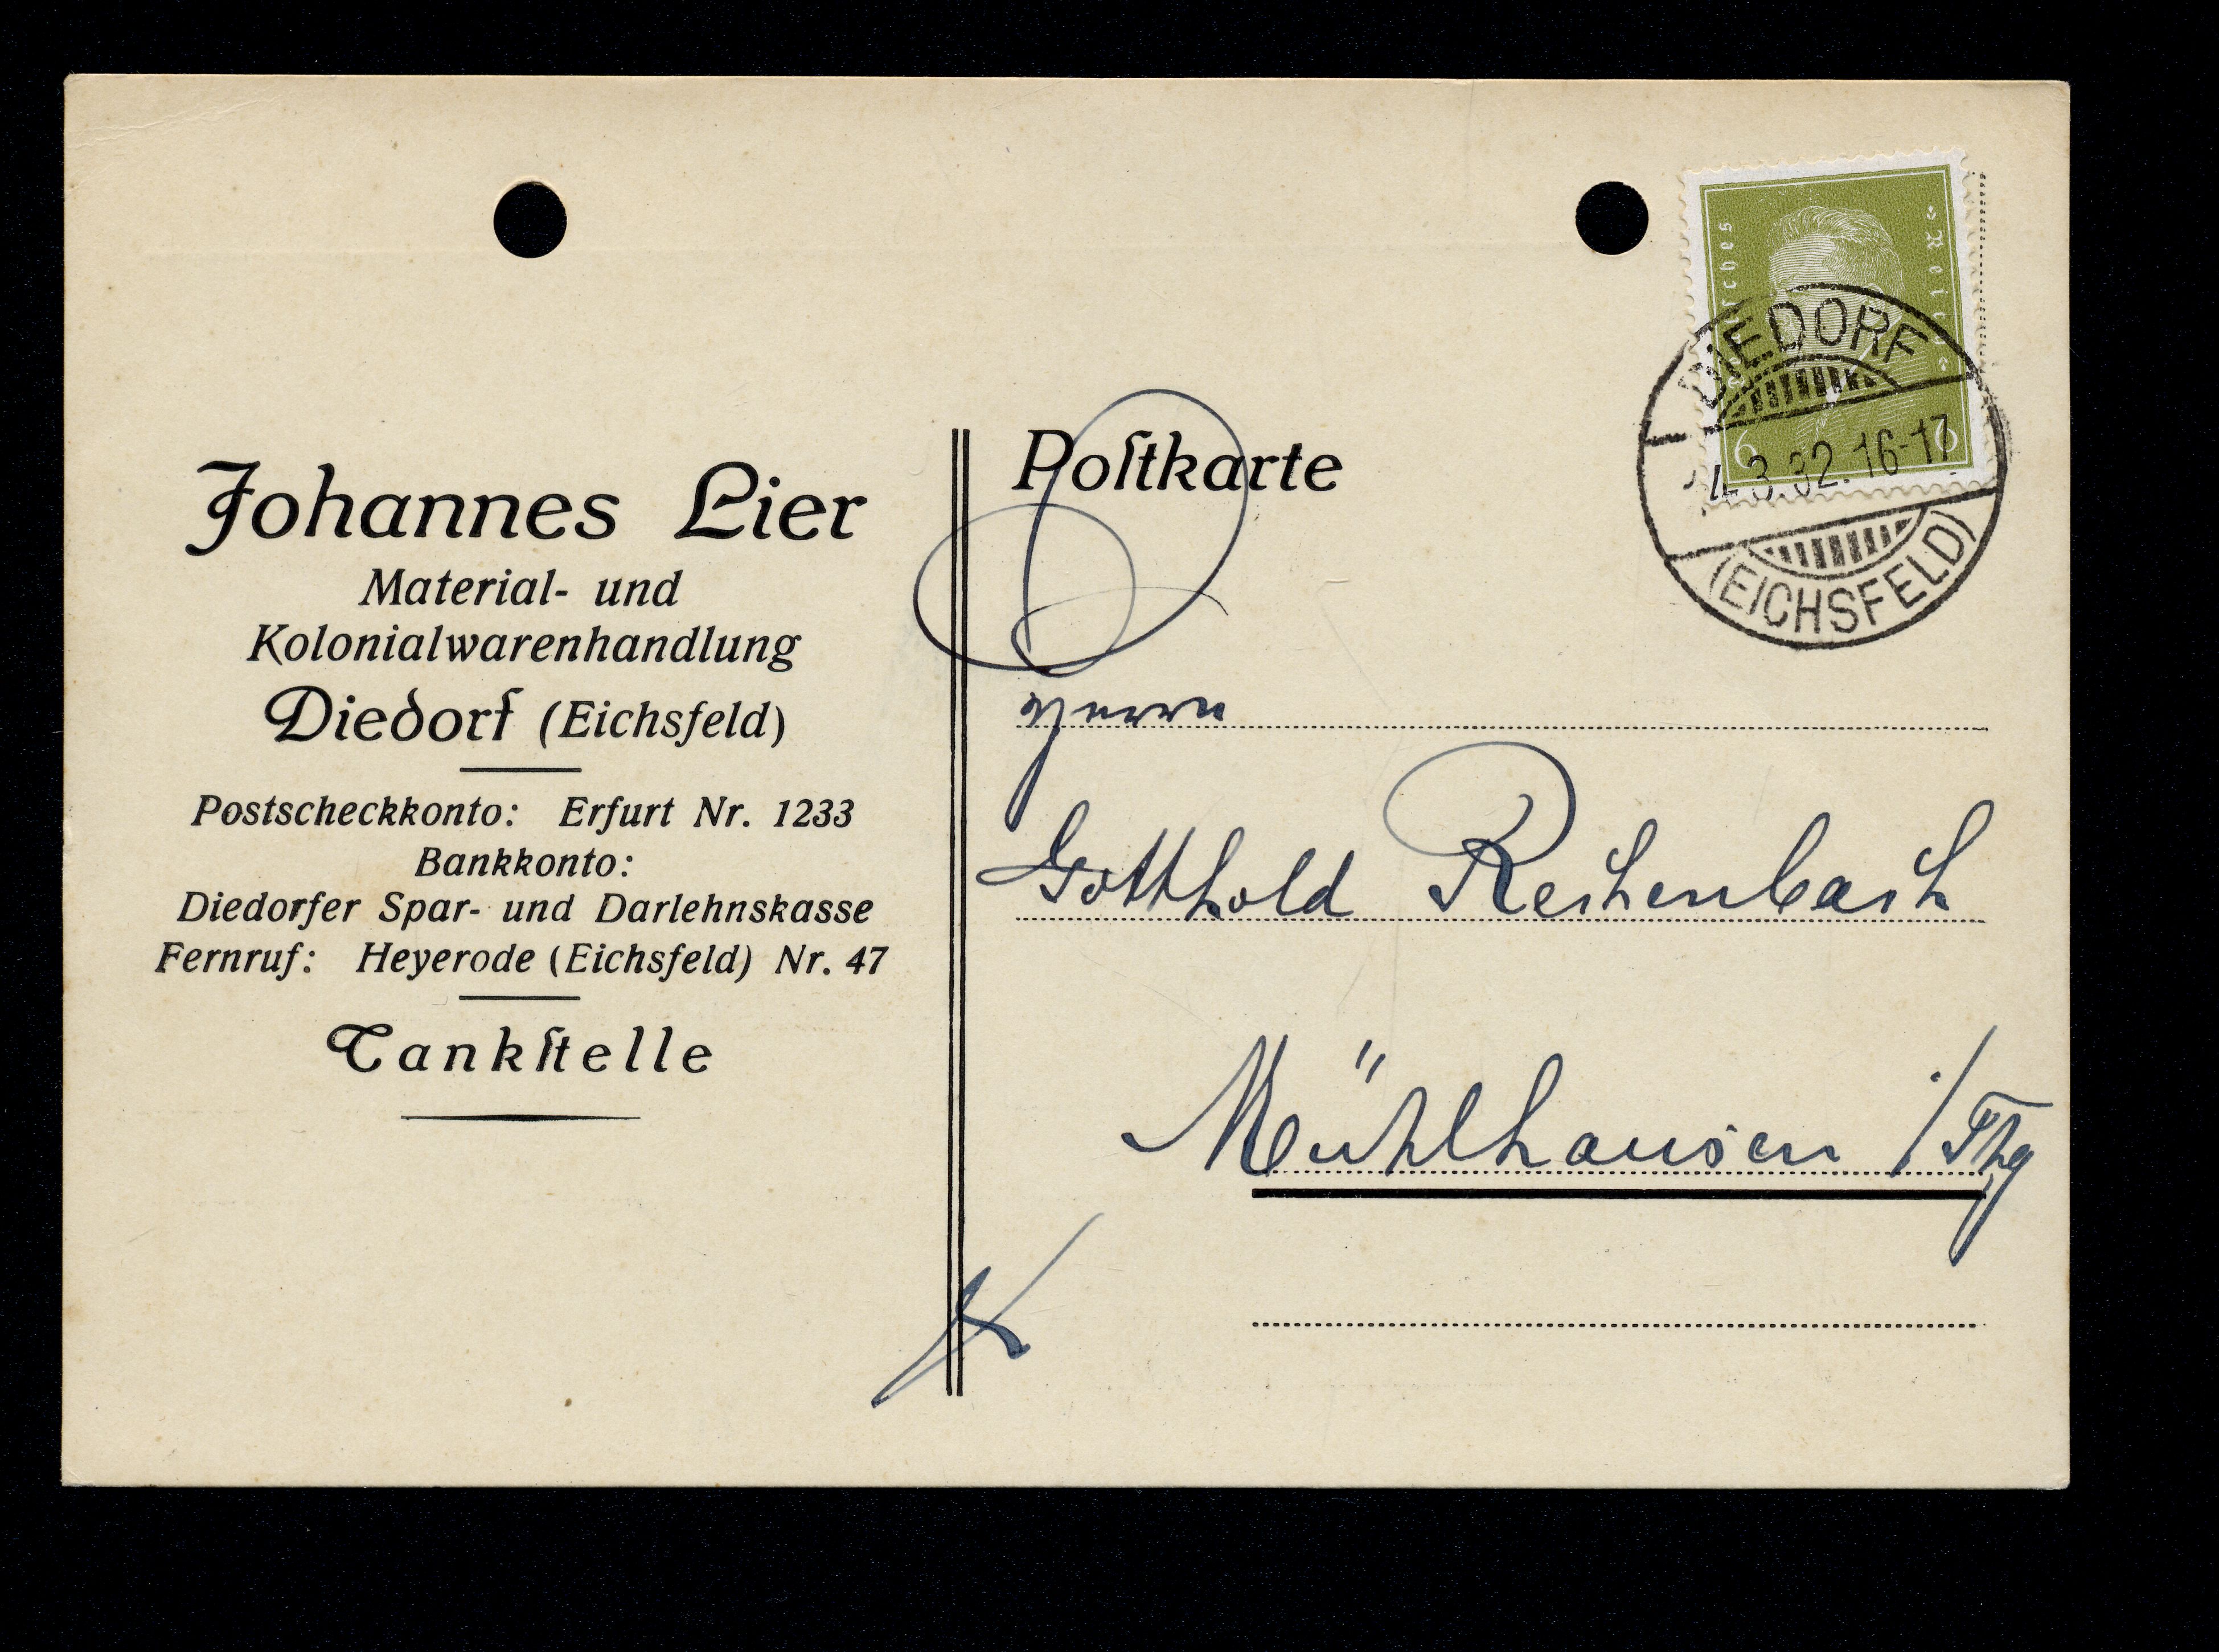 Johannes Lier
Material- und
Kolonialwarenhandlung
Diedorf (Eichsfeld)
Postscheckkonto: Erfurt Nr. 1233
Bankkonto:
Diedorfer Spar- und Darlehnskasse
Fernruf: Heyerode (Eichsfeld) Nr. 47
Tankſtelle
Poſtkarte
Deutsches Reich
6 6
DIEDORF
4.3.32.16-17
(EICHSFELD)
Herrn
Gotthold Reichenbach
Mühlhausen i/Thg